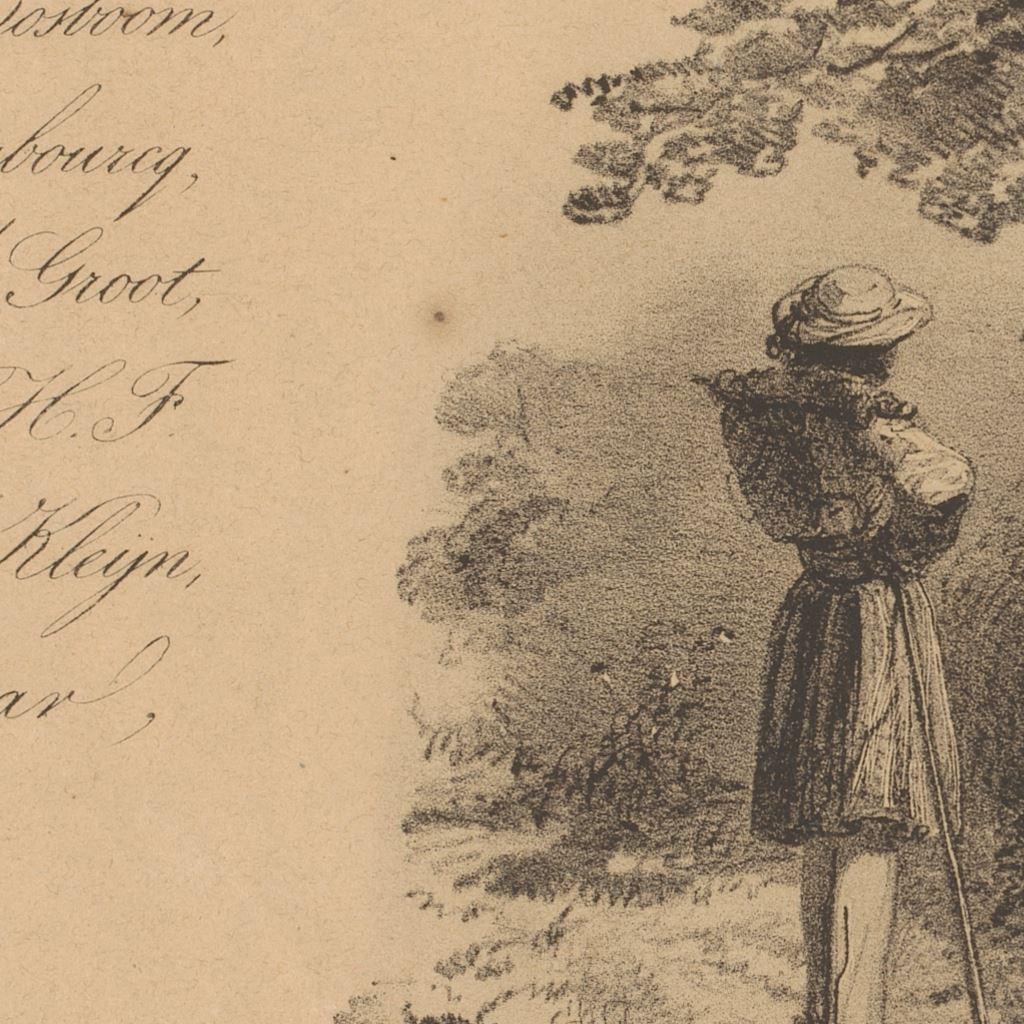 osboom,
bourcq,
Groot,
H. F.
Kleijn,
ar,